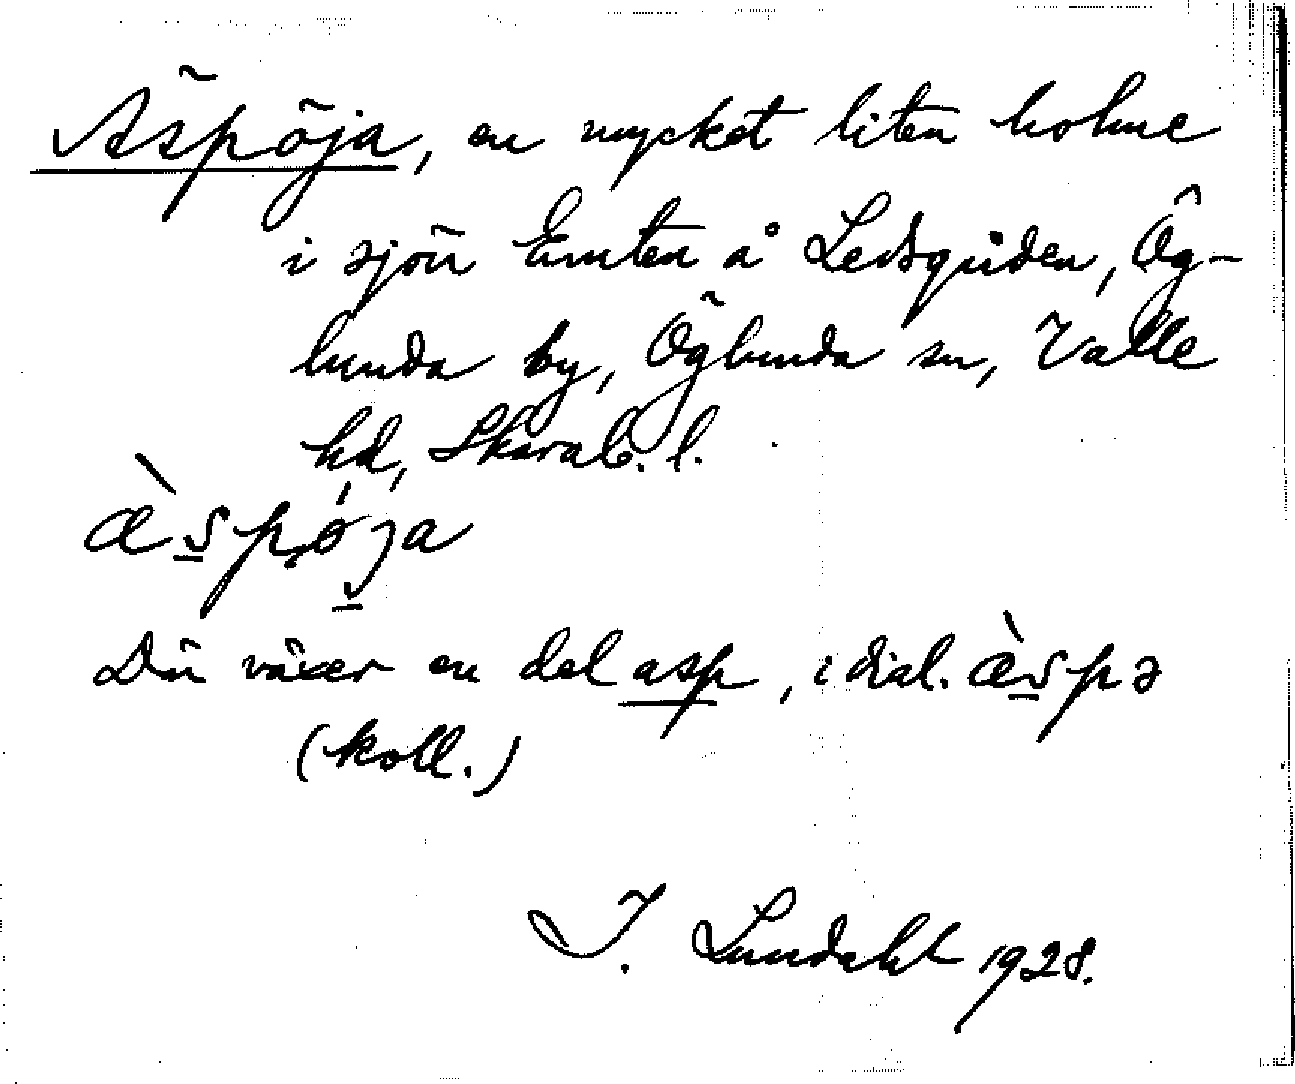 Äspöja, en mycket liten holme
i sjön Emten å Ledsgården, Ög-
lunda by, Öglunda sn, Valle
hd, Skarab. l.
æ̀spøja
Där växer en del asp, i dial. æ̀spə
(koll.)
I. Lundahl 1928.